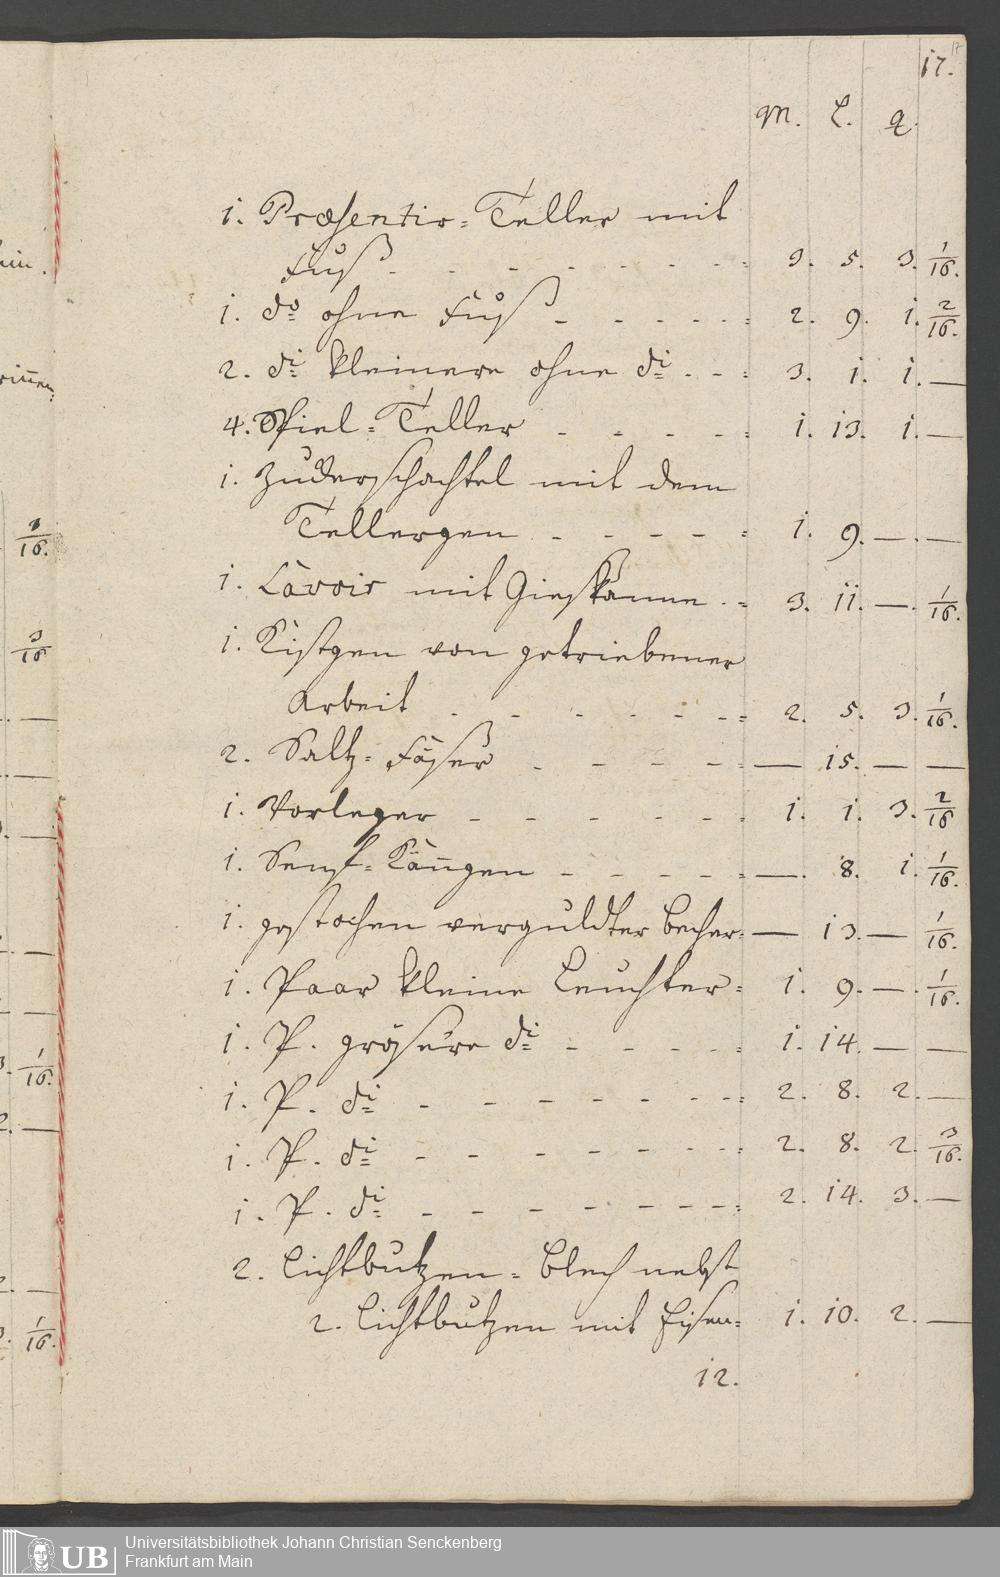 17.
M. L. q.
1. Præsentir-Teller mit
Fuß - - - - - - - 3. 5. 3. 1/16.
1. do ohne Fuß - - - - - 2. 9. 1. 2/16.
2. di kleinere ohne di - - 3. 1. 1. —
4. Spiel-Teller - - - - 1. 13. 1. —
1. Zuckerschachtel mit dem
Tellergen - - - - - 1. 9. — . —
1. Lavoir mit Gieskanne - 3. 11. — . 1/16.
1. Kistgen von getriebener
Arbeit - - - - - - 2. 5. 3. 1/16.
2. Saltz-Fäßer - - - - — 15. — —
1. Vorleger - - - - - - 1. 1. 3. 2/16
1. Senf-Kañgen - - - - — . 8. 1. 1/16.
1. gestochen verguldter Becher — 13. — 1/16.
1. Paar kleine Leuchter 1. 9. — . 1/16.
1. P. grösere di - - - - 1. 14. — —
1. P. di - - - - - - - 2. 8. 2. —
1. P. di - - - - - - - 2. 8. 2. 3/16.
1. P. di - - - - - - - 2. 14. 3. —
2. Lichtbutzen-Blech nebst
2. Lichtbutzen mit Eisen 1. 10. 2. —
12.
UB
Universitätsbibliothek Johann Christian Senckenberg
Frankfurt am Main